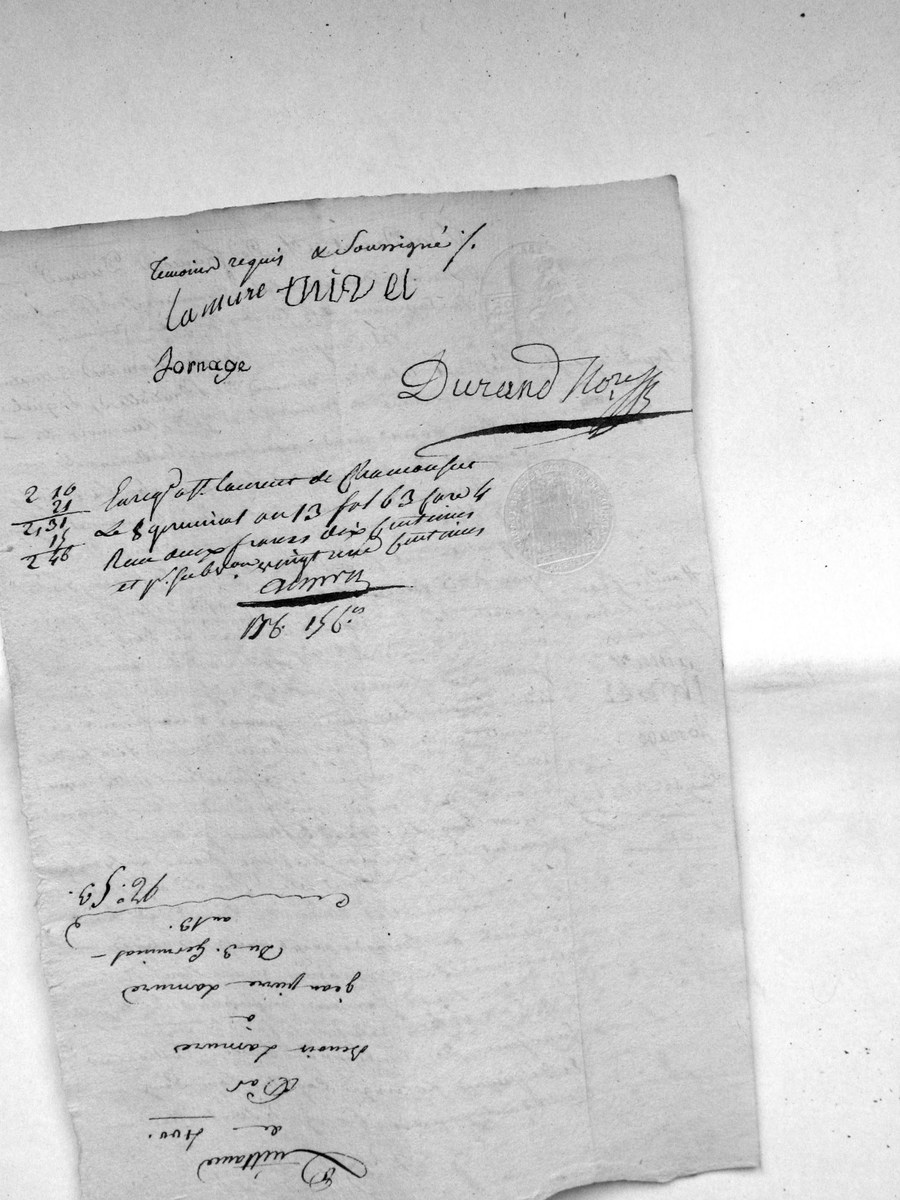 temoins requis & Soussigné ;/.
Lamure thivel
Jornage
Durand Nore
2 10
21
2,31
15
2 46
Enreg. a St. laurent de Chamousset
Le 8 germinal an 13 fol 63 Case 4
Reçu deux francs dix Centimes
et pr. Subvon vingt une Centimes
15 c.
Quittance
de 400.
Par
Benoit Lamure
à
jean pierre Lamure
Du 3. Germinal
an 13.
No. 53.